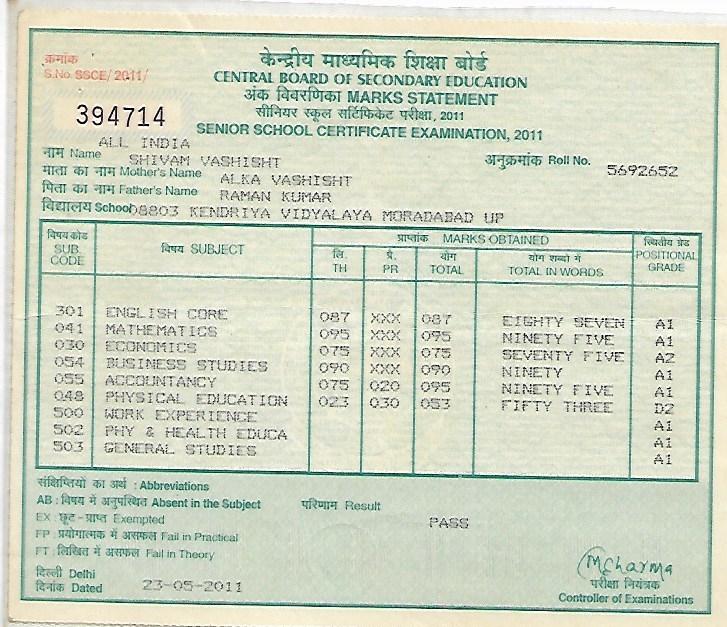 क्रमांक
S.No. SSCE/2011/
394714
केन्द्रीय माध्यमिक शिक्षा बोर्ड
CENTRAL BOARD OF SECONDARY EDUCATION
अंक विवरणिका MARKS STATEMENT
सीनियर स्कूल सर्टिफिकेट परीक्षा, 2011
SENIOR SCHOOL CERTIFICATE EXAMINATION, 2011
ALL INDIA
नाम Name SHIVAM VASHISHT अनुक्रमांक Roll No. 5692652
माता का नाम Mother's Name ALKA VASHISHT
पिता का नाम Father's Name RAMAN KUMAR
विद्यालय School 08803 KENDRIYA VIDYALAYA MORADABAD UP
विषय कोड SUB. CODE विषय SUBJECT प्राप्तांक MARKS OBTAINED स्थितीय ग्रेड POSITIONAL GRADE
लि. TH प्रे. PR योग TOTAL योग शब्दों में TOTAL IN WORDS
301 ENGLISH CORE 087 XXX 087 EIGHTY SEVEN A1
041 MATHEMATICS 095 XXX 095 NINETY FIVE A1
030 ECONOMICS 075 XXX 075 SEVENTY FIVE A2
054 BUSINESS STUDIES 090 XXX 090 NINETY A1
055 ACCOUNTANCY 075 020 095 NINETY FIVE A1
048 PHYSICAL EDUCATION 023 030 053 FIFTY THREE D2
500 WORK EXPERIENCE A1
502 PHY & HEALTH EDUCA A1
503 GENERAL STUDIES A1
संक्षिप्तियों का अर्थ : Abbreviations
AB : विषय में अनुपस्थित Absent in the Subject परिणाम Result PASS
EX : छूट-प्राप्त Exempted
FP : प्रयोगात्मक में असफल Fail in Practical
FT : लिखित में असफल Fail in Theory
दिल्ली Delhi
दिनांक Dated 23-05-2011
परीक्षा नियंत्रक
Controller of Examinations